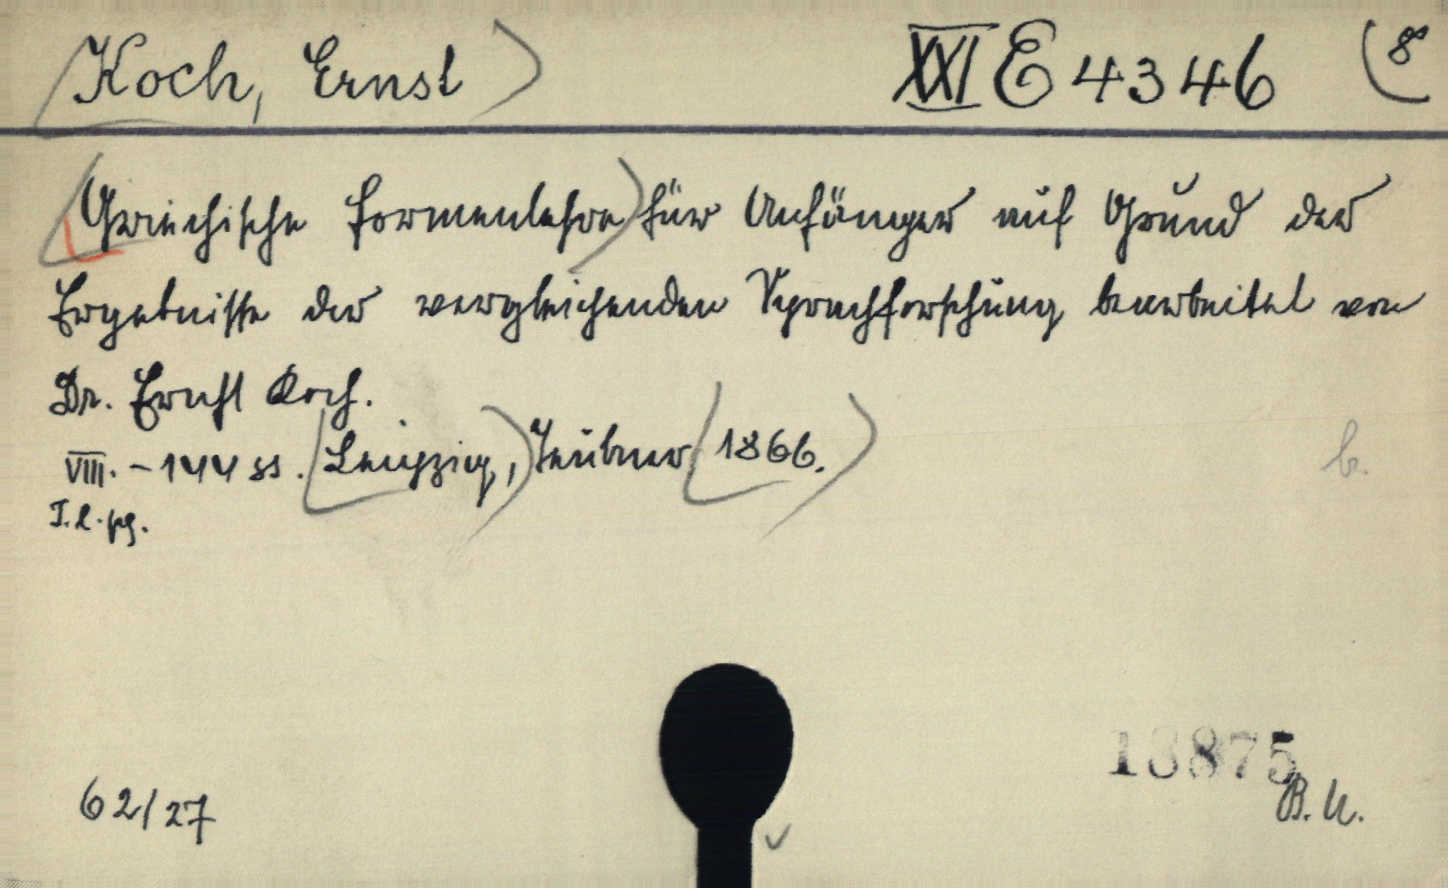 Koch, Ernst XXI E 4346 8°
Griechische Formenlehre für Anfänger auf Grund der
Ergebnisse der vergleichenden Sprachforschung bearbeitet von
Dr. Ernst Koch.
VIII. - 144 ss. Leipzig, Teubner 1866.
b.
I. l. pg.
13875
62/27
B. U.